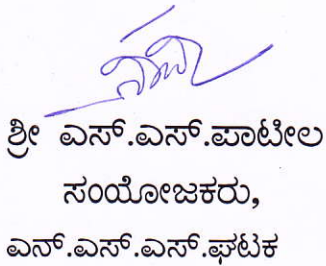 ಶ್ರೀ ಎಸ್.ಎಸ್.ಪಾಟೀಲ
ಸಂಯೋಜಕರು,
ಎನ್.ಎಸ್.ಎಸ್.ಘಟಕ